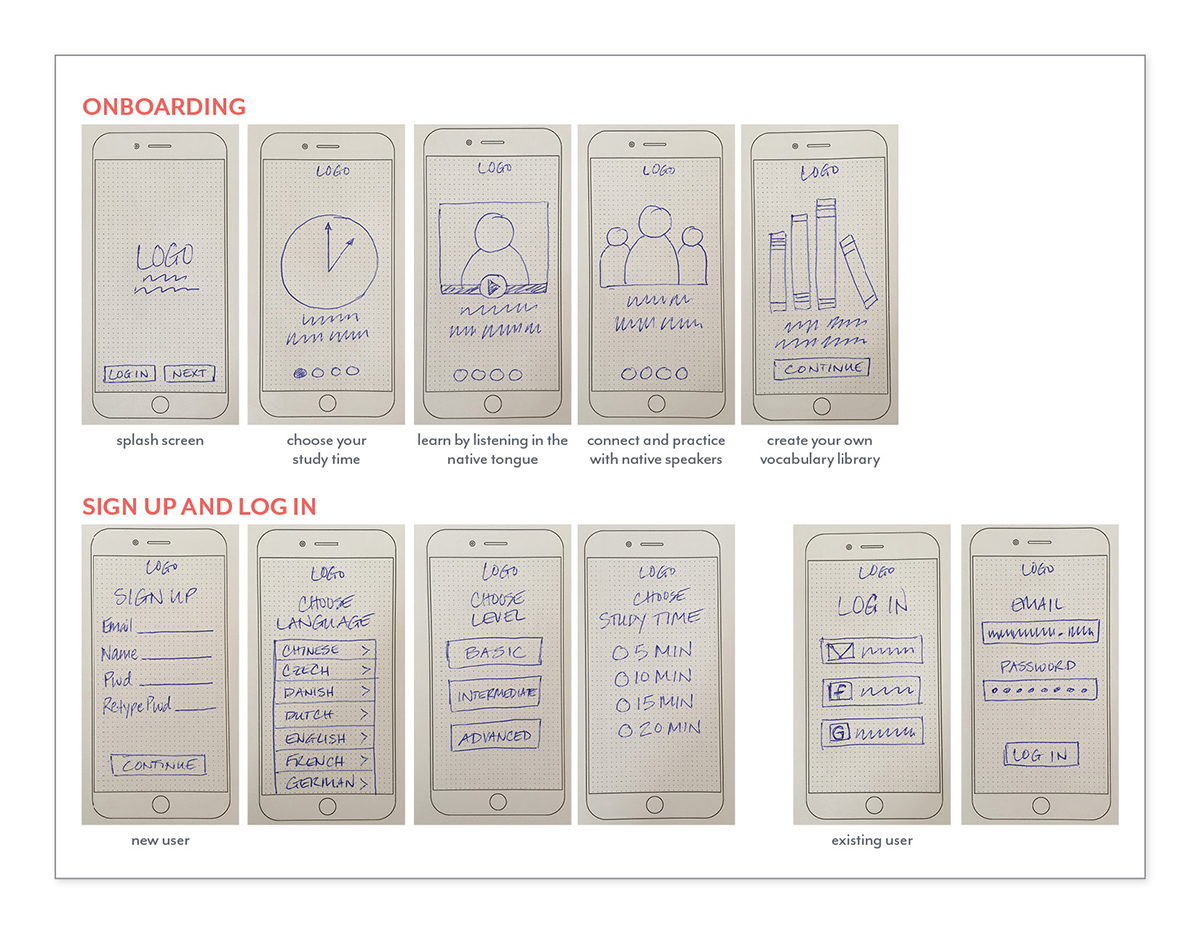 ONBOARDING
LOGO
LOG IN
NEXT
splash screen
LOGO
choose your
study time
LOGO
learn by listening in the
native tongue
LOGO
connect and practice
with native speakers
LOGO
CONTINUE
create your own
vocabulary library
SIGN UP AND LOG IN
LOGO
SIGN UP
Email
Name
Pwd
Retype Pwd
CONTINUE
new user
LOGO
CHOOSE
LANGUAGE
CHINESE >
CZECH >
DANISH >
DUTCH >
ENGLISH >
FRENCH >
GERMAN >
LOGO
CHOOSE
LEVEL
BASIC
INTERMEDIATE
ADVANCED
LOGO
CHOOSE
STUDY TIME
5 MIN
10 MIN
15 MIN
20 MIN
LOGO
LOG IN
f
G
existing user
LOGO
EMAIL
PASSWORD
LOG IN